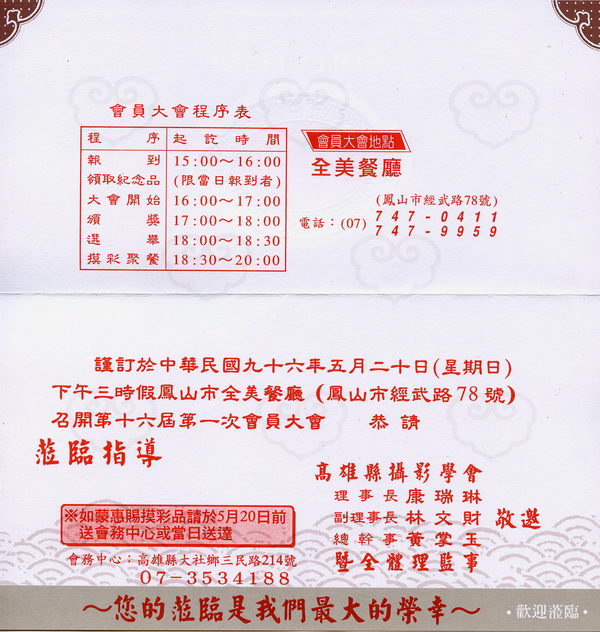 會員大會程序表
程序 起訖時間
報到 15:00～16:00
領取紀念品 (限當日報到者)
大會開始 16:00～17:00
頒獎 17:00～18:00
選舉 18:00～18:30
摸彩聚餐 18:30～20:00
會員大會地點
全美餐廳
(鳳山市經武路78號)
電話：(07) 747-0411
747-9959
謹訂於中華民國九十六年五月二十日(星期日)
下午三時假鳳山市全美餐廳(鳳山市經武路78號)
召開第十六屆第一次會員大會 恭請
蒞臨指導
高雄縣攝影學會
理事長康瑞琳
副理事長林文財
總幹事黃堂玉
暨全體理監事
敬邀
※如蒙惠賜摸彩品請於5月20日前
送會務中心或當日送達
會務中心：高雄縣大社鄉三民路214號
07-3534188
～您的蒞臨是我們最大的榮幸～
·歡迎蒞臨·